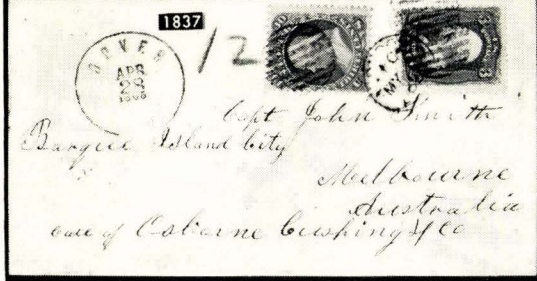 1837
DOVER
APR
28
12
Capt John Smith
Barque Island City
Melbourne
Australia
care of Osborne Cushing & Co